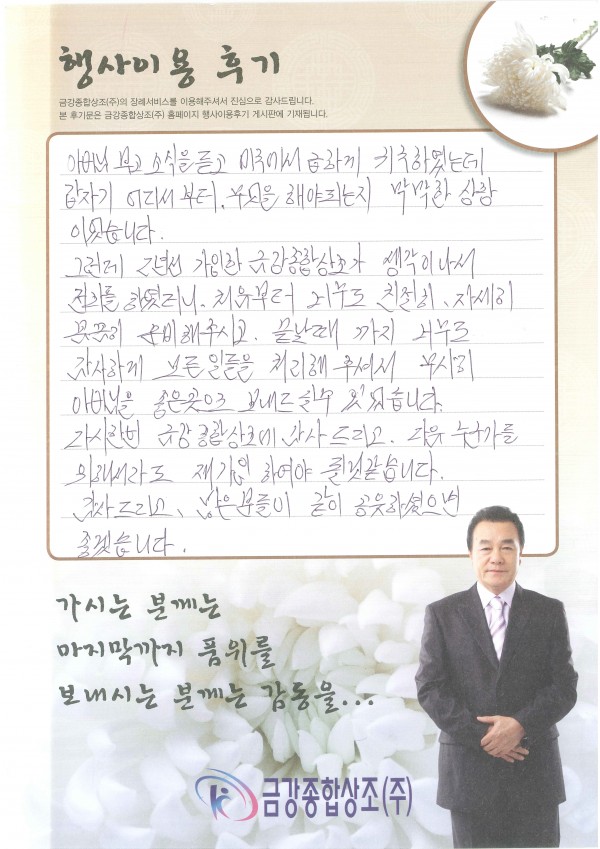 행사이용 후기
금강종합상조(주)의 장례서비스를 이용해주셔서 진심으로 감사드립니다.
본 후기문은 금강종합상조(주) 홈페이지 행사이용후기 게시판에 기재됩니다.
아버님 부고 소식을 듣고 미국에서 급하게 귀국하였는데
갑자기 어디서부터, 무엇을 해야되는지 막막한 상황
이었습니다.
그런데 2년전 가입한 금강종합상조가 생각이나서
전화를 하였더니, 처음부터 너무도 친절히, 자세히
꼼꼼히 준비해주시고, 끝날때 까지 너무도
감사하게 모든일들을 처리해 주셔서 무사히
아버님을 좋은곳으로 보내드릴수 있었습니다.
다시한번 금강종합상조에 감사드리고, 다음 누군가를
위해서라도 재가입 하여야 될것같습니다.
감사드리고, 많은분들이 같이 공유하셨으면
좋겠습니다.
가시는 분께는
마지막까지 품위를
보내시는 분께는 감동을...
금강종합상조(주)